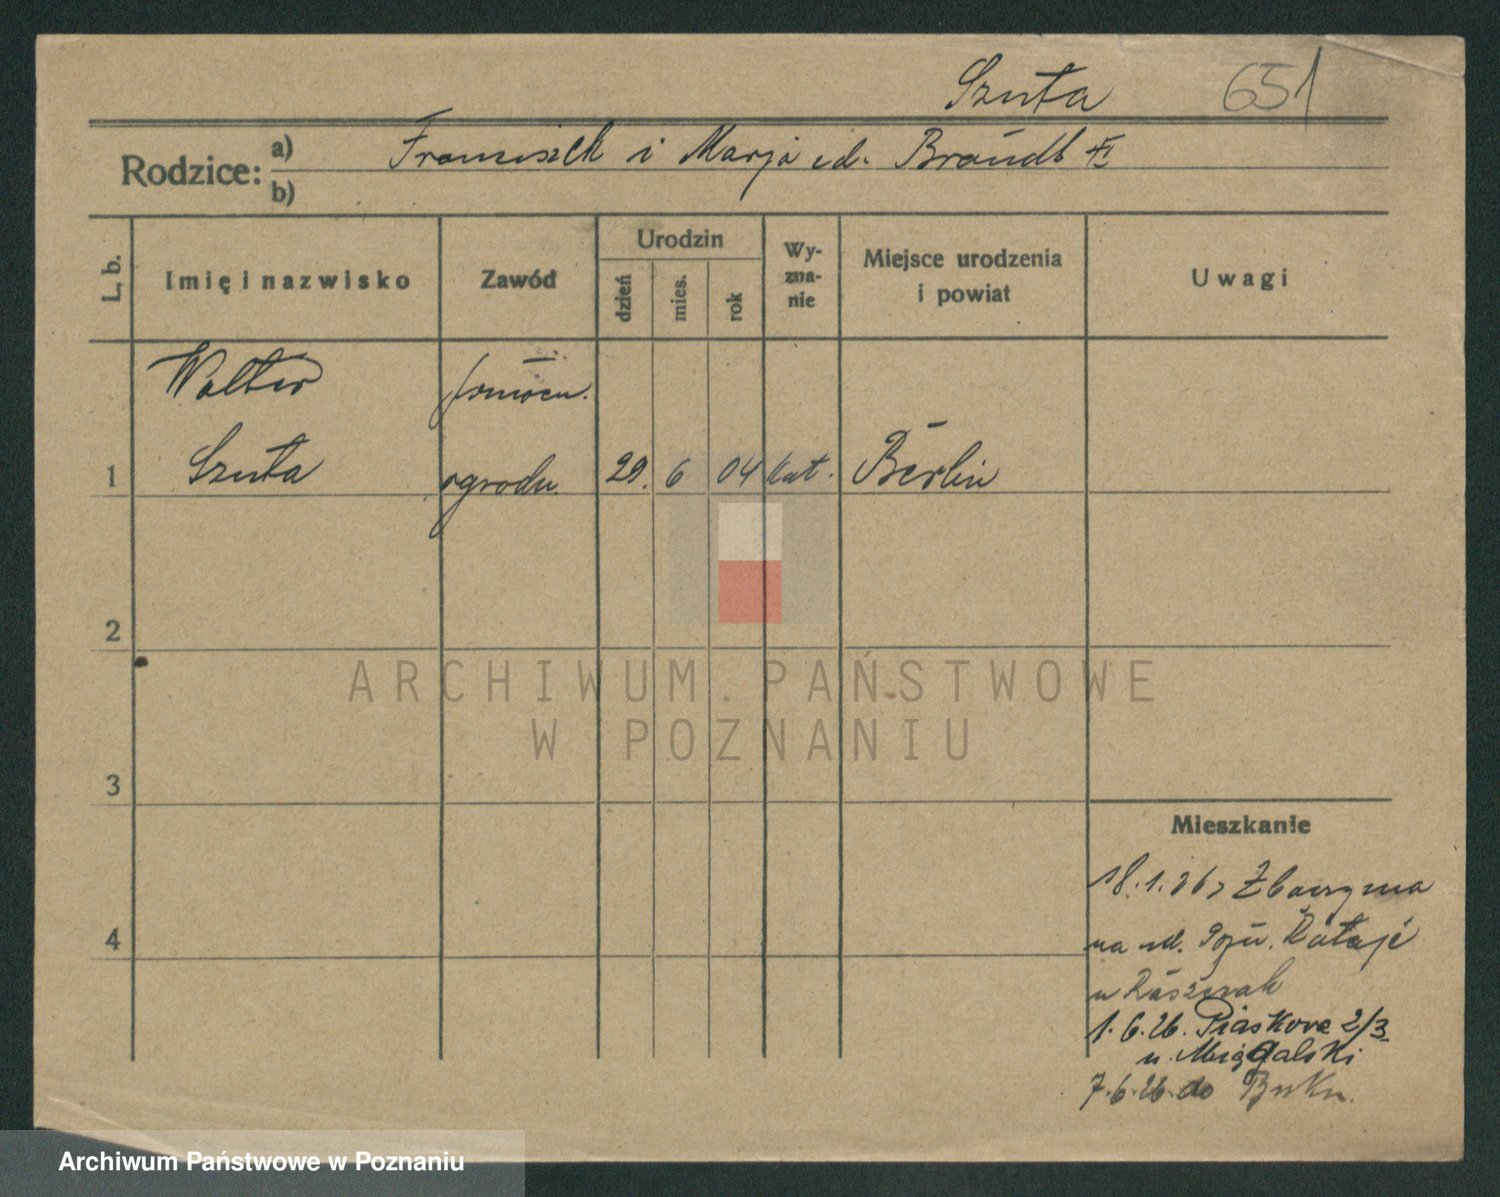 Szuta 651
Rodzice: a) Franciszek i Marja ud. Brandt
b)
L. b. Imię i nazwisko Zawód Urodzin dzień mies. rok Wy-zna-nie Miejsce urodzenia i powiat Uwagi
Walter pomocn.
1 Szuta ogrodn. 29. 6 04 kat. Berlin
2
3
4
Mieszkanie
18.1.26 z
na Pozn. Rataje
u
1.6.26. Piaskowa 2/3
u. Migdalski
7.6.26 do Buku.
ARCHIWUM PAŃSTWOWE
W POZNANIU
Archiwum Państwowe w Poznaniu